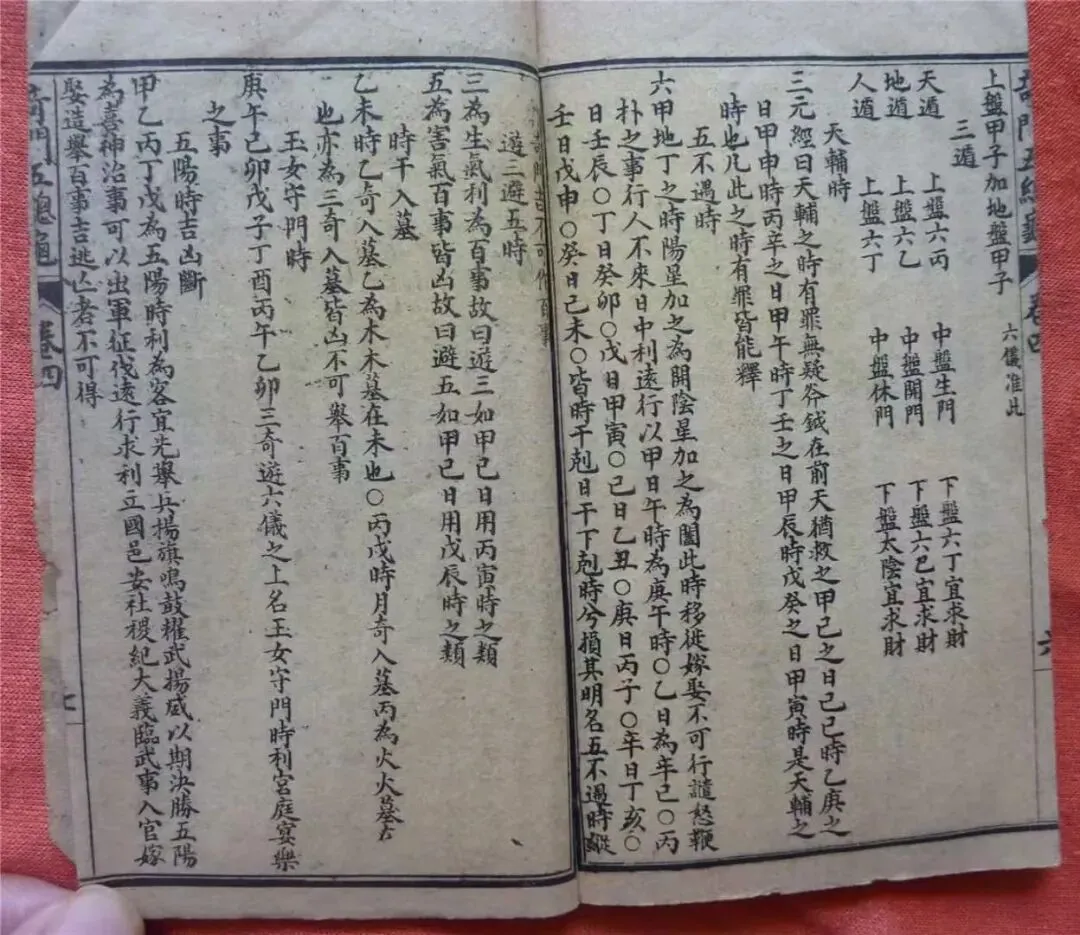 上盤甲子加地盤甲子 六儀准此
三遁
天遁 上盤六丙 中盤生門 下盤六丁宜求財
地遁 上盤六乙 中盤開門 下盤六己宜求財
人遁 上盤六丁 中盤休門 下盤太陰宜求財
天輔時
三元經曰天輔之時有罪無疑斧鉞在前天猶救之甲己之日己巳時乙庚之
日甲申時丙辛之日甲午時丁壬之日甲辰時戊癸之日甲寅時是天輔之
時也凡此之時有罪皆能釋
五不遇時
六甲地丁之時陽星加之為開陰星加之為闔此時移徙嫁娶不可行譴怒鞭
朴之事行人不來日中利遠行以甲日午時為庚午時○乙日為年己○丙
日壬辰○丁日癸卯○戊日甲寅○己日乙丑○庚日丙子○年日丁亥○
壬日戊申○癸日己未○皆時干剋日干下剋時兮損其明名五不遇時縱
不可作百事
遊三避五時
三為生氣利為百事故曰遊三如甲己日用丙寅時之類
五為害氣百事皆凶故曰避五如甲己日用戊辰時之類
時干入墓
乙未時乙奇入墓乙為木木墓在未也○丙戌時月奇入墓丙為火火墓
也亦為三奇入墓皆凶不可舉百事
玉女守門時
庚午己卯戊子丁酉丙午乙卯三奇遊六儀之上名玉女守門時利宮庭宴樂
之事
五陽時吉凶斷
甲乙丙丁戊為五陽時利為客宜先舉兵揚旗鳴鼓耀武揚威以期決勝五陽
為喜神治事可以出軍征伐遠行求利立國邑安社稷紀大義臨武事入官嫁
娶造舉百事吉逃亡者不可得
奇門五總龜 卷四 七